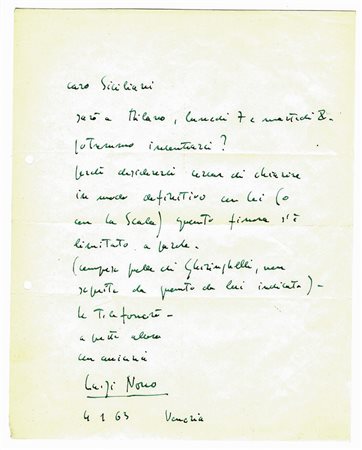 caro Siciliani
sarò a Milano, lunedì 7 e martedì 8-
potremmo incontrarci?
perché desidererei cercar di chiarire
in modo definitivo con lei (o
con la Scala) quanto finora s'è
limitato a parole.
(compresa quella di Ghiringhelli, non
seguita da quanto da lui indicato)-
Le telefonerò-
a presto allora
con amicizia
Luigi Nono
4 1 63 Venezia